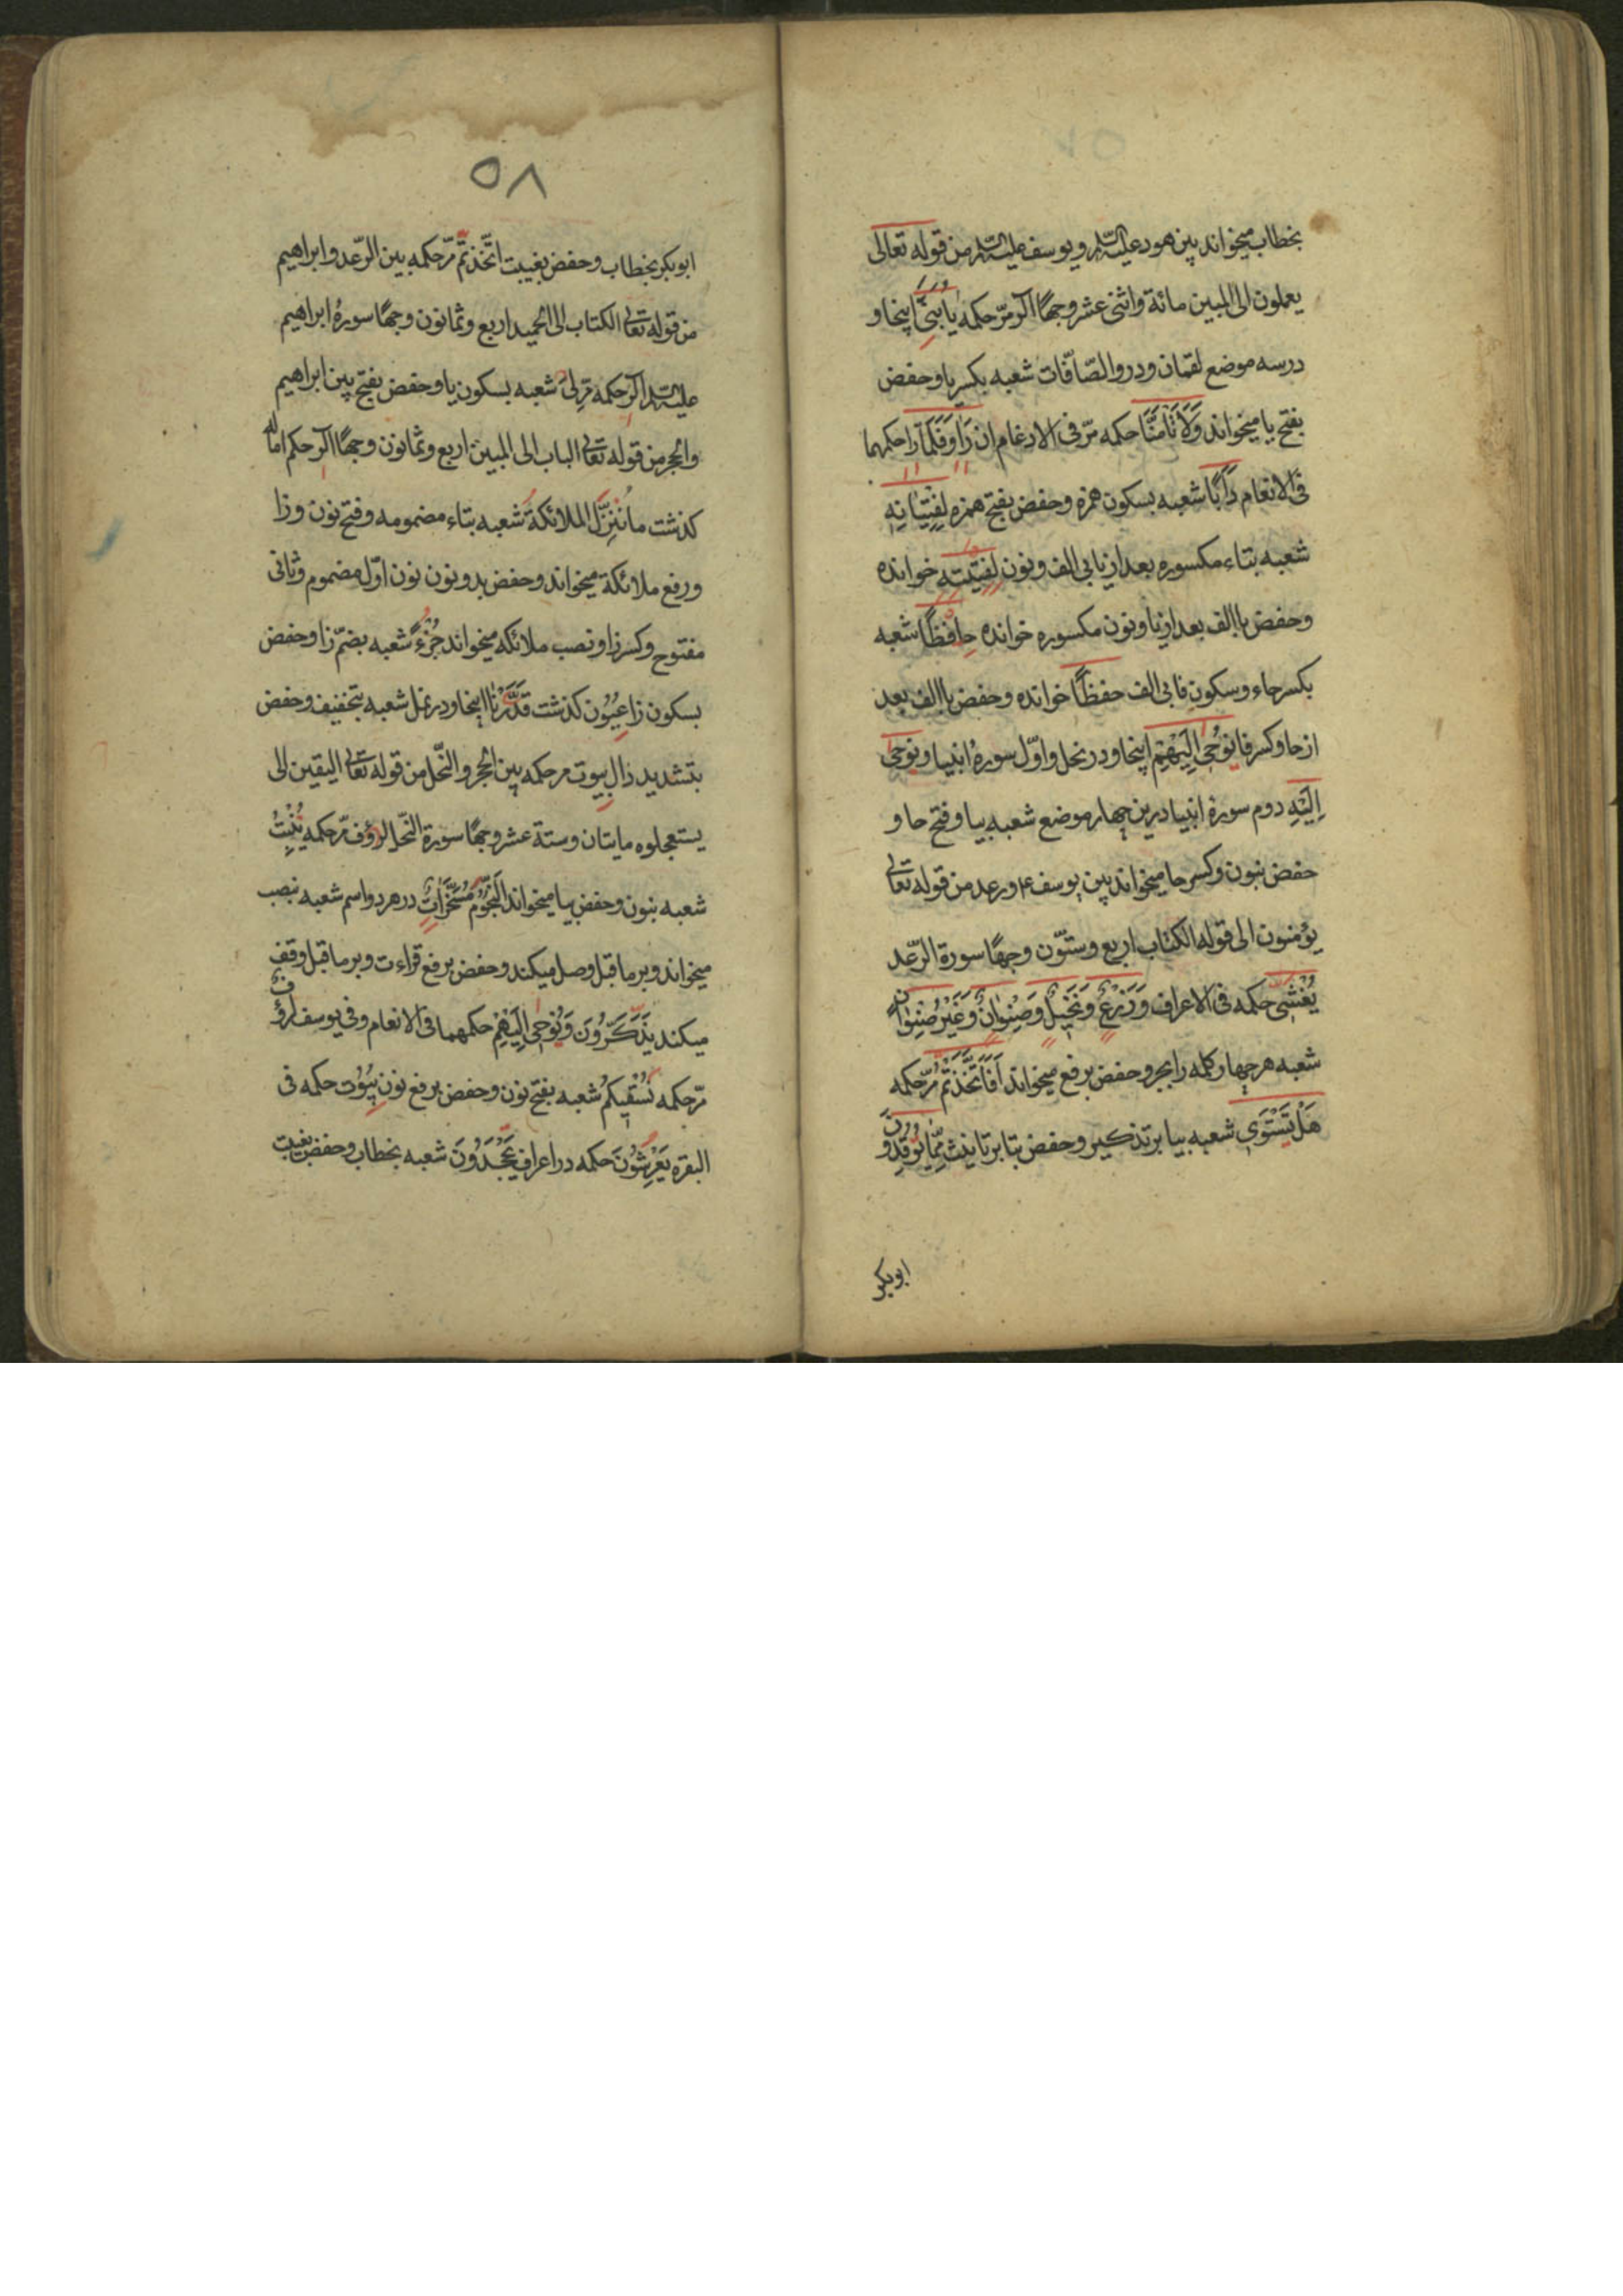 بخطاب میخواند بین هود علیه السلم و یوسف علیه السلم من قوله تعالی
یعملون الی المبین مائة واثنی عشر وجهًا آلر مرّ حکمه یَا بُنَیَّ اینجا و
در سه موضع لقمان و در والصّافّات شعبه بکسر یا و حفص
بفتح یا میخواند وَلَا تَأْمَنَّا حکمه مرّ فی الادغام ان رَاٰ وَ فَلَمَّا رَاٰ حکمهما
فی الانعام دَاَبًا شعبه بسکون همزه و حفص بفتح همزه لِفِتْیَانِهِ
شعبه بتاء مکسوره بعد از یا بی الف و نون لِفِتْیَتِهِ خوانده
و حفص با الف بعد از یا و نون مکسوره خوانده حَافِظًا شعبه
بکسر حاء و سکون فا بی الف حفظًا خوانده و حفص با الف بعد
از حا و کسر فا نُوحِی اِلَیْهِمْ اینجا و در نحل و اوّل سورهٔ انبیا و نوحی
اِلَیْهِ دوم سورهٔ انبیا درین چهار موضع شعبه بیا و فتح حا و
حفص بنون و کسر حا میخواند بین یوسف ع و رعد من قوله تعالی
یؤمنون الی قوله الکتاب اربع و ستّون وجهًا سورة الرّعد
یُغْشِی حکمه فی الاعراف وَزَرْعٌ وَنَخِیلٌ وَصِنْوَانٌ وَغَیْرُ صِنْوَانٍ
شعبه هر چهار کلمه را بجر و حفص برفع میخواند اَفَاتَّخَذْتُمْ مرّ حکمه
هَلْ تَسْتَوِی شعبه بیا بر تذکیر و حفص بتا بر تانیث مِمَّا یُوقِدُونَ
ابوبکر
۵۸
ابوبکر بخطاب و حفص بغیبت اتَّخَذْتُمْ مرّ حکمه بین الرّعد و ابراهیم
من قوله تعالی الکتاب الی الحمید اربع و ثمانون وجهًا سورهٔ ابراهیم
علیه السلم آلر حکمه مرّ لِیَ شعبه بسکون یا و حفص بفتح بین ابراهیم
والحجر من قوله تعالی الباب الی المبین اربع و ثمانون وجهًا آلر حکم اماله
کذشت مَا نُنَزِّلُ الْمَلَائِکَةَ شعبه بتاء مضمومه و فتح نون و زا
و رفع ملائکة میخواند و حفص بدو نون نون اوّل مضموم و ثانی
مفتوح و کسر زا و نصب ملائکه میخواند جُزْءٌ شعبه بضمّ زا و حفص
بسکون زا عِیُون کذشت قَدَّرْنَا اینجا و در نمل شعبه بتخفیف و حفص
بتشدید دال بیوت مر حکمه بین الحجر والنّحل من قوله تعالی الیقین الی
یستعجلوه مایتان وستة عشر وجهًا سورة النّحل لرؤف مرّ حکمه یُنْبِتُ
شعبه بنون و حفص بیا میخواند اَلنُّجُومُ مُسَخَّرَاتٌ در هر دو اسم شعبه بنصب
میخواند و بر ما قبل وصل میکند و حفص برفع قراءت و بر ما قبل وقف
میکند یَذَّکَّرُونَ وَ نُوحِی اِلَیْهِمْ حکمهما فی الانعام و فی یوسف لرؤف
مرّ حکمه نُسْقِیکُمْ شعبه بفتح نون و حفص برفع نون بیُوت حکمه فی
البقره یَعْرِشُونَ حکمه در اعراف یَجْحَدُونَ شعبه بخطاب و حفص بغیبت